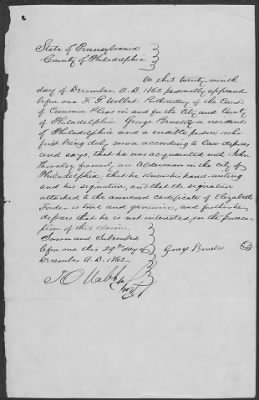 State of Pennsylvania
County of Philadelphia
On this twenty ninth
day of December A.D. 1862 personally appeared
before me Prothonotary of the Court
of Common Pleas in and for the City and County
of Philadelphia George a resident
of Philadelphia and a credible person who
first being duly sworn according to law deposes
and says, that he was acquainted with John
Thornley formerly an Alderman in the city of
Philadelphia; that he knows his hand-writing
and his signature, and that the signature
attached to the annexed certificate of Elizabeth
is true and genuine, and further
deposes that he is not interested in the prosecu-
tion of this claim.
Sworn and Subscribed
before me this 29th day of
December A.D. 1862.
George